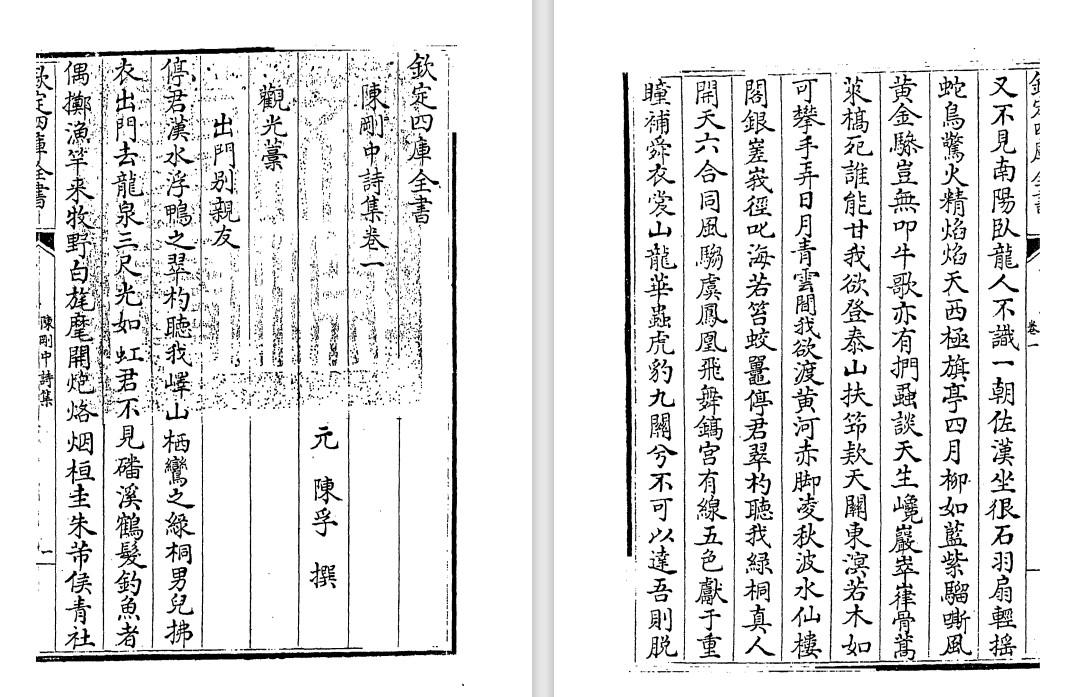 欽定四庫全書
陳剛中詩集卷一
元 陳孚 撰
觀光藁
出門别親友
停君漢水浮鴨之翠杓聽我嶧山栖鸞之緑桐男兒拂
衣出門去龍泉三尺光如虹君不見磻溪鶴髮釣魚者
偶擲漁竿来牧野白旄麾開炮烙烟桓圭朱芾侯青社
欽定四庫全書
陳剛中詩集
一
欽定四庫全書
卷一
又不見南陽臥龍人不識一朝佐漢坐很石羽扇輕揺
蛇鳥驚火精焰焰天西極旗亭四月柳如藍紫騮嘶風
黄金驂豈無叩牛歌亦有捫蝨談天生巉巖崒嵂骨蒿
萊槁死誰能甘我欲登泰山扶笻欵天關東溟若木如
可攀手弄日月青雲間我欲渡黄河赤脚凌秋波水仙樓
閣銀嵳峩徑叱海若笞蛟鼉停君翠杓聽我緑桐真人
開天六合同風騶虞鳳凰飛舞鎬宫有線五色獻于重
瞳補舜衣裳山龍華蟲虎豹九關兮不可以達吾則脱